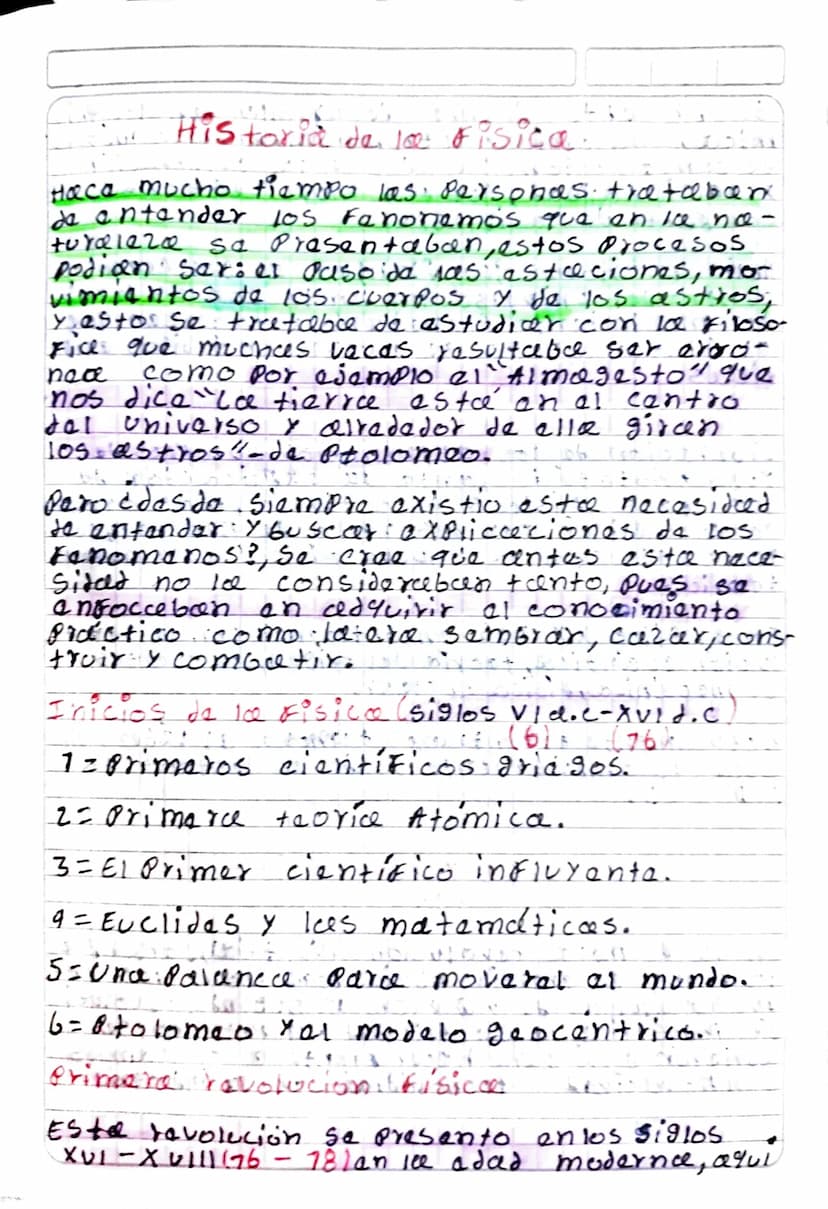 Historia de la Física
Hace mucho tiempo las personas trataban
de entender los fenonemos que en la na-
turaleza se presentaban, estos procesos
podían ser: el paso de las estaciones, mo-
vimientos de los cuerpos y de los astros,
y esto se trataba de estudiar con la filoso-
fia que muchas veces resultaba ser erró-
nea como por ejemplo el "Almagesto" que
nos dica "La tierra está en el centro
del universo y alrededor de ella giran
los astros"-de Ptolomeo.
Pero ¿desde siempre existio esta necesidad
de entender y buscar explicaciones de los
fenomenos?, se cree que antes esta nece-
sidad no la consideraban tanto, pues se
enfocaban en adquirir el conocimiento
práctico como lo era sembrar, cazar, cons-
truir y combatir.
Inicios de la física (siglos VI a.c-XVI d.c)
(6) (76)
1=Primeros científicos griegos.
2= Primera teoría Atómica.
3=El primer científico influyente.
4=Euclides y las matemáticas.
5=Una palanca para moveral el mundo.
6=Ptolomeo y el modelo geocentrico.
Primera revolucion física
Esta revolución se presento en los siglos
XVI-XVIII(76-78) en la edad moderna, aqui